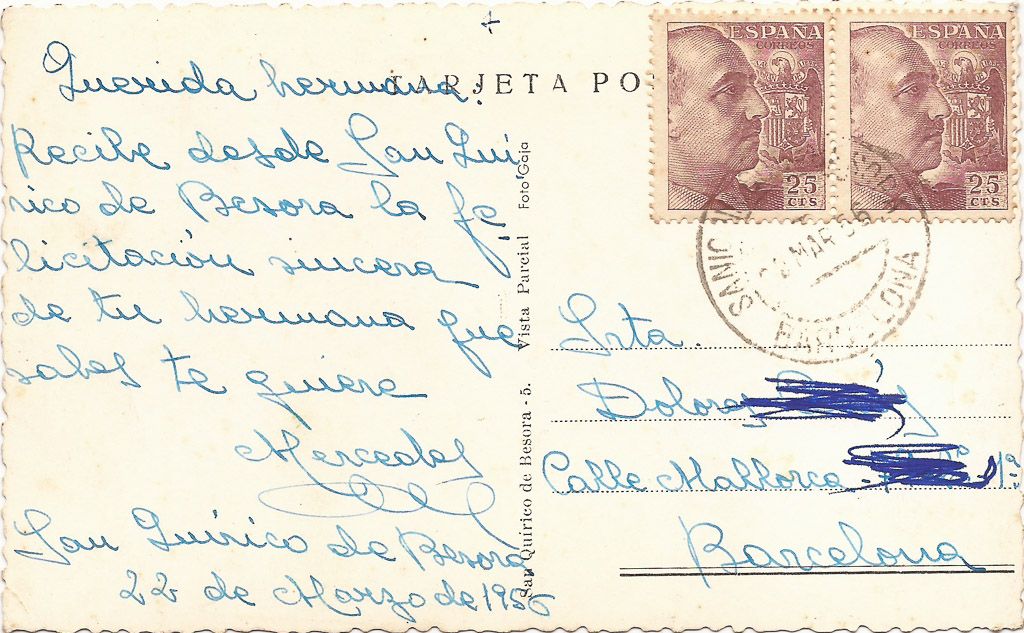 TARJETA PO
Querida hermana:
Recibe desde San Qui
rico de Besora la fe
licitación sincera
de tu hermana que
sabes te quiere
Mercedes
San Quirico de Besora
22 de Marzo de 1956
San Quirico de Besora - 5. Vista Parcial Foto Gaja
ESPAÑA
CORREOS
25
CTS
ESPAÑA
CORREOS
25
CTS
MAR 56
BARCELONA
Srta.
Dolores
Calle Mallorca 1ª
Barcelona